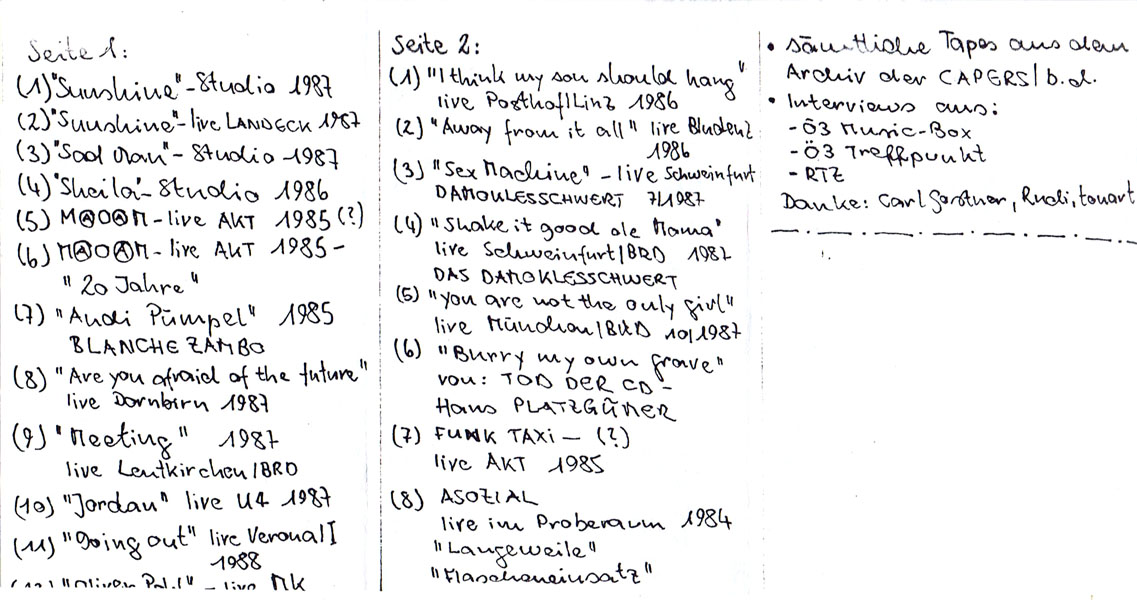 Seite 1:
(1) "Sunshine" - Studio 1987
(2) "Sunshine" - live LANDECK 1987
(3) "Sad Man" - Studio 1987
(4) "Sheila" - Studio 1986
(5) MⒶOⒶM - live AKT 1985 (?)
(6) MⒶOⒶM - live AKT 1985 -
"20 Jahre"
(7) "Audi Pümpel" 1985
BLANCHE ZAMBO
(8) "Are you afraid of the future"
live Dornbirn 1987
(9) "Meeting" 1987
live Leutkirchen/BRD
(10) "Jordan" live U4 1987
(11) "Going out" live Verona/I
1988
Seite 2:
(1) "I think my son should hang"
live Posthof/Linz 1986
(2) "Away from it all" live Bludenz
1986
(3) "Sex Machine" - live Schweinfurt
DAMOKLESSCHWERT 7/1987
(4) "Shake it good ole Mama"
live Schweinfurt/BRD 1987
DAS DAMOKLESSCHWERT
(5) "you are not the only girl"
live München/BRD 10/1987
(6) "Burry my own grave"
von: TOD DER CD -
Hans PLATZGÜMER
(7) FUNK TAXi - (?)
live AKT 1985
(8) ASOZIAL
live im Proberaum 1984
"Langeweile"
"Flascheneinsatz"
• sämtliche Tapes aus dem
Archiv der CAPERS/b.d.
• Interviews aus:
- Ö3 Music-Box
- Ö3 Treffpunkt
- RTZ
Danke: Carl Gastner, Rudi, tonart